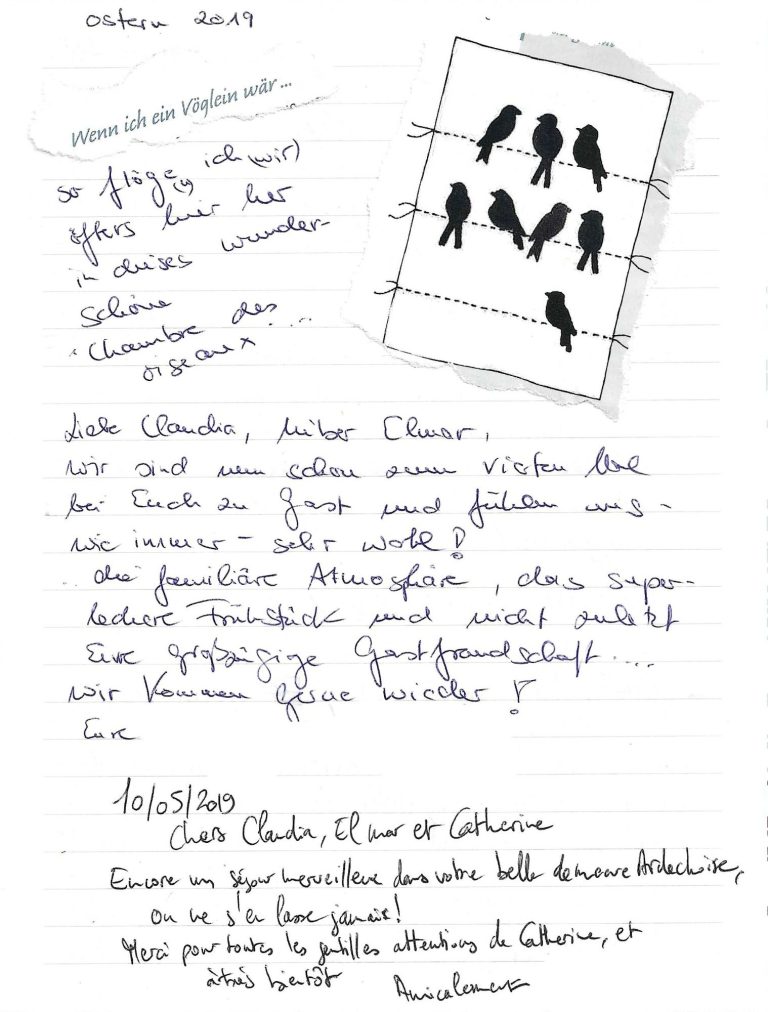 Ostern 2019
Wenn ich ein Vöglein wär ...
so flöge(n) ich (wir)
öfters hier her
in dieses wunder-
schöne
"Chambre des
oiseaux ....
Liebe Claudia, lieber Elmar,
wir sind nun schon zum vierten Mal
bei Euch zu Gast und fühlen uns -
wie immer - sehr wohl!
.. die familiäre Atmosphäre, das super-
leckere Frühstück und nicht zuletzt
Eure großzügige Gastfreundschaft....
wir kommen gerne wieder!
Eure
10/05/2019
Chers Claudia, Elmar et Catherine
Encore un séjour merveilleux dans votre belle demeure Ardèchoise,
on ne s'en lasse jamais!
Merci pour toutes les gentilles attentions de Catherine, et
à très bientôt
Amicalement